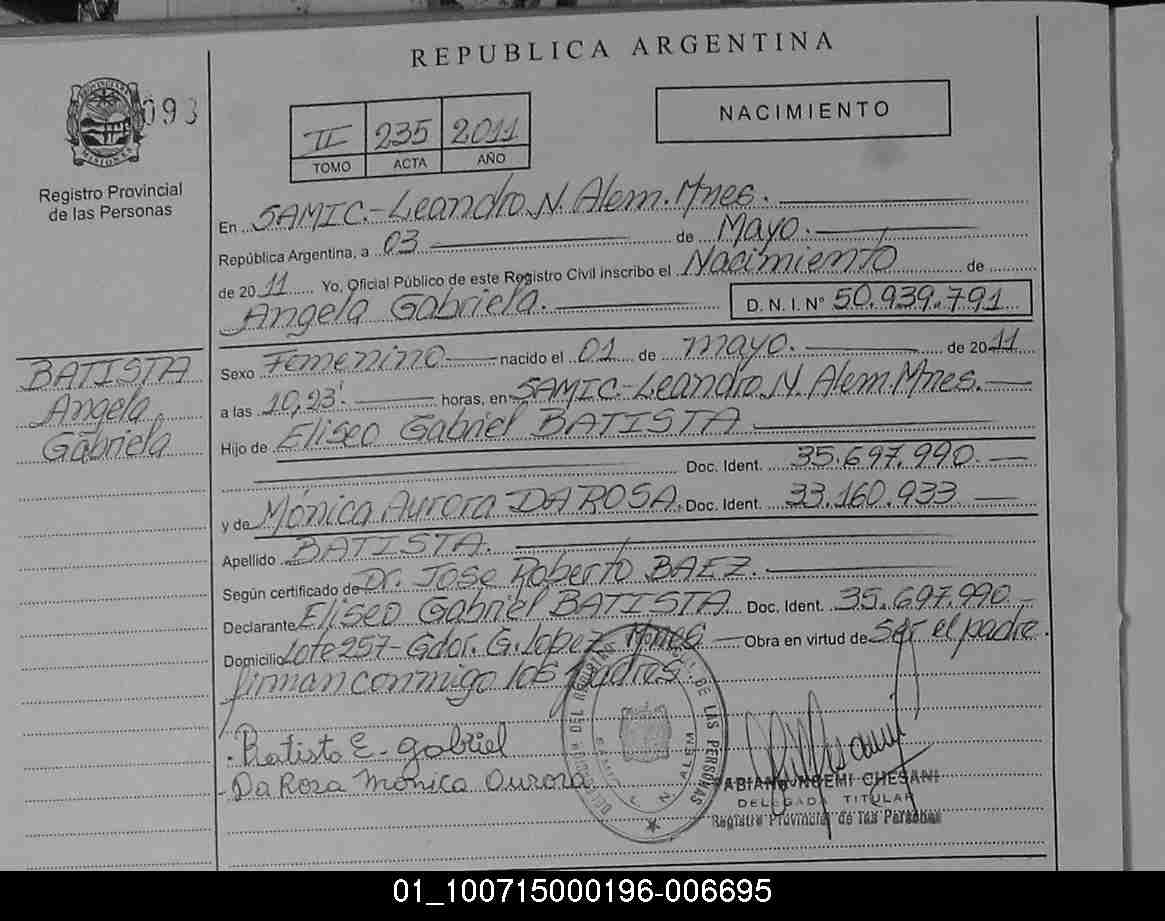 REPUBLICA ARGENTINA
093
PROVINCIA DE MISIONES
Registro Provincial
de las Personas
II 235 2011
TOMO ACTA AÑO
NACIMIENTO
En SAMIC.-Leandro N. Alem. Mnes.
República Argentina, a 03 de Mayo.
de 2011 Yo, Oficial Público de este Registro Civil inscribo el Nacimiento de
Angela Gabriela. D. N. I. Nº 50.939.791
BATISTA
Angela
Gabriela
Sexo Femenino nacido el 01 de mayo. de 2011
a las 10,23' horas, en SAMIC-Leandro N. Alem. Mnes.
Hijo de Eliseo Gabriel BATISTA
Doc. Ident. 35.697.990
y de Mónica Aurora DA ROSA. Doc. Ident. 33.160.933
Apellido BATISTA.
Según certificado de Dr. Jose Roberto BAEZ.
Declarante Eliseo Gabriel BATISTA Doc. Ident. 35.697.990
Domicilio Lote 257-Gdor. G. Lopez Mnes Obra en virtud de ser el padre.
firman conmigo los padres.
Batista E. gabriel
Da Rosa Monica Aurora
DE LAS PERSONAS
FABIANA NOEMI CHESANI
DELEGADA TITULAR
Registro Provincial de las Personas
01_100715000196-006695